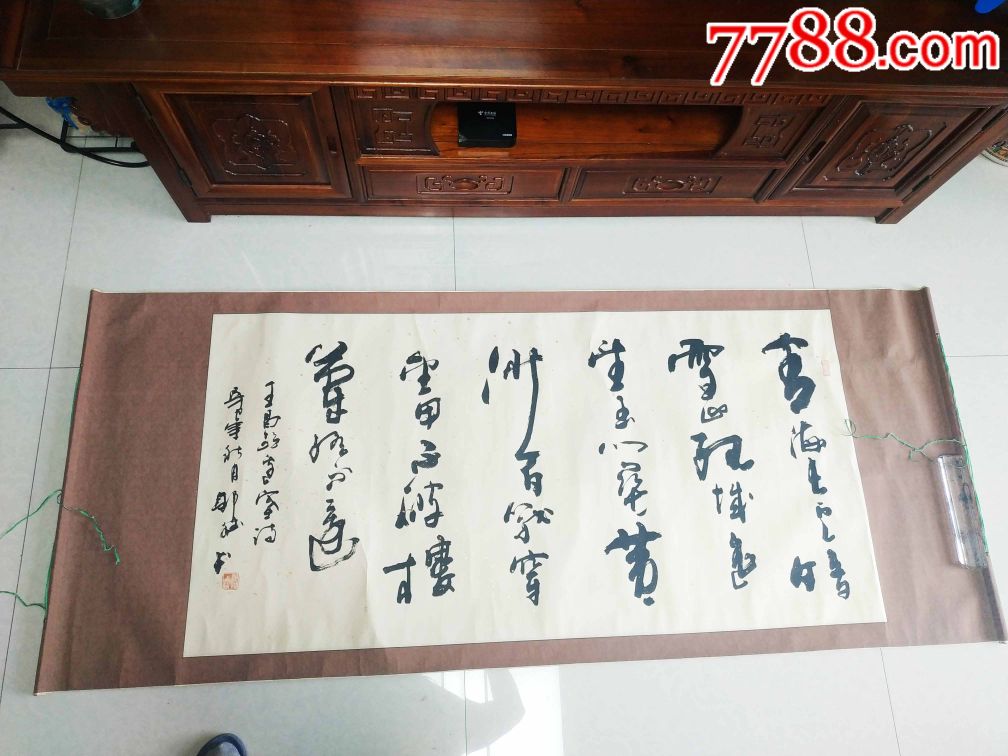 7788.com
青海长云暗
雪山孤城遥
望玉门关黄
沙百战穿
金甲不破楼
兰终不还
王昌龄边塞诗
年秋月
书